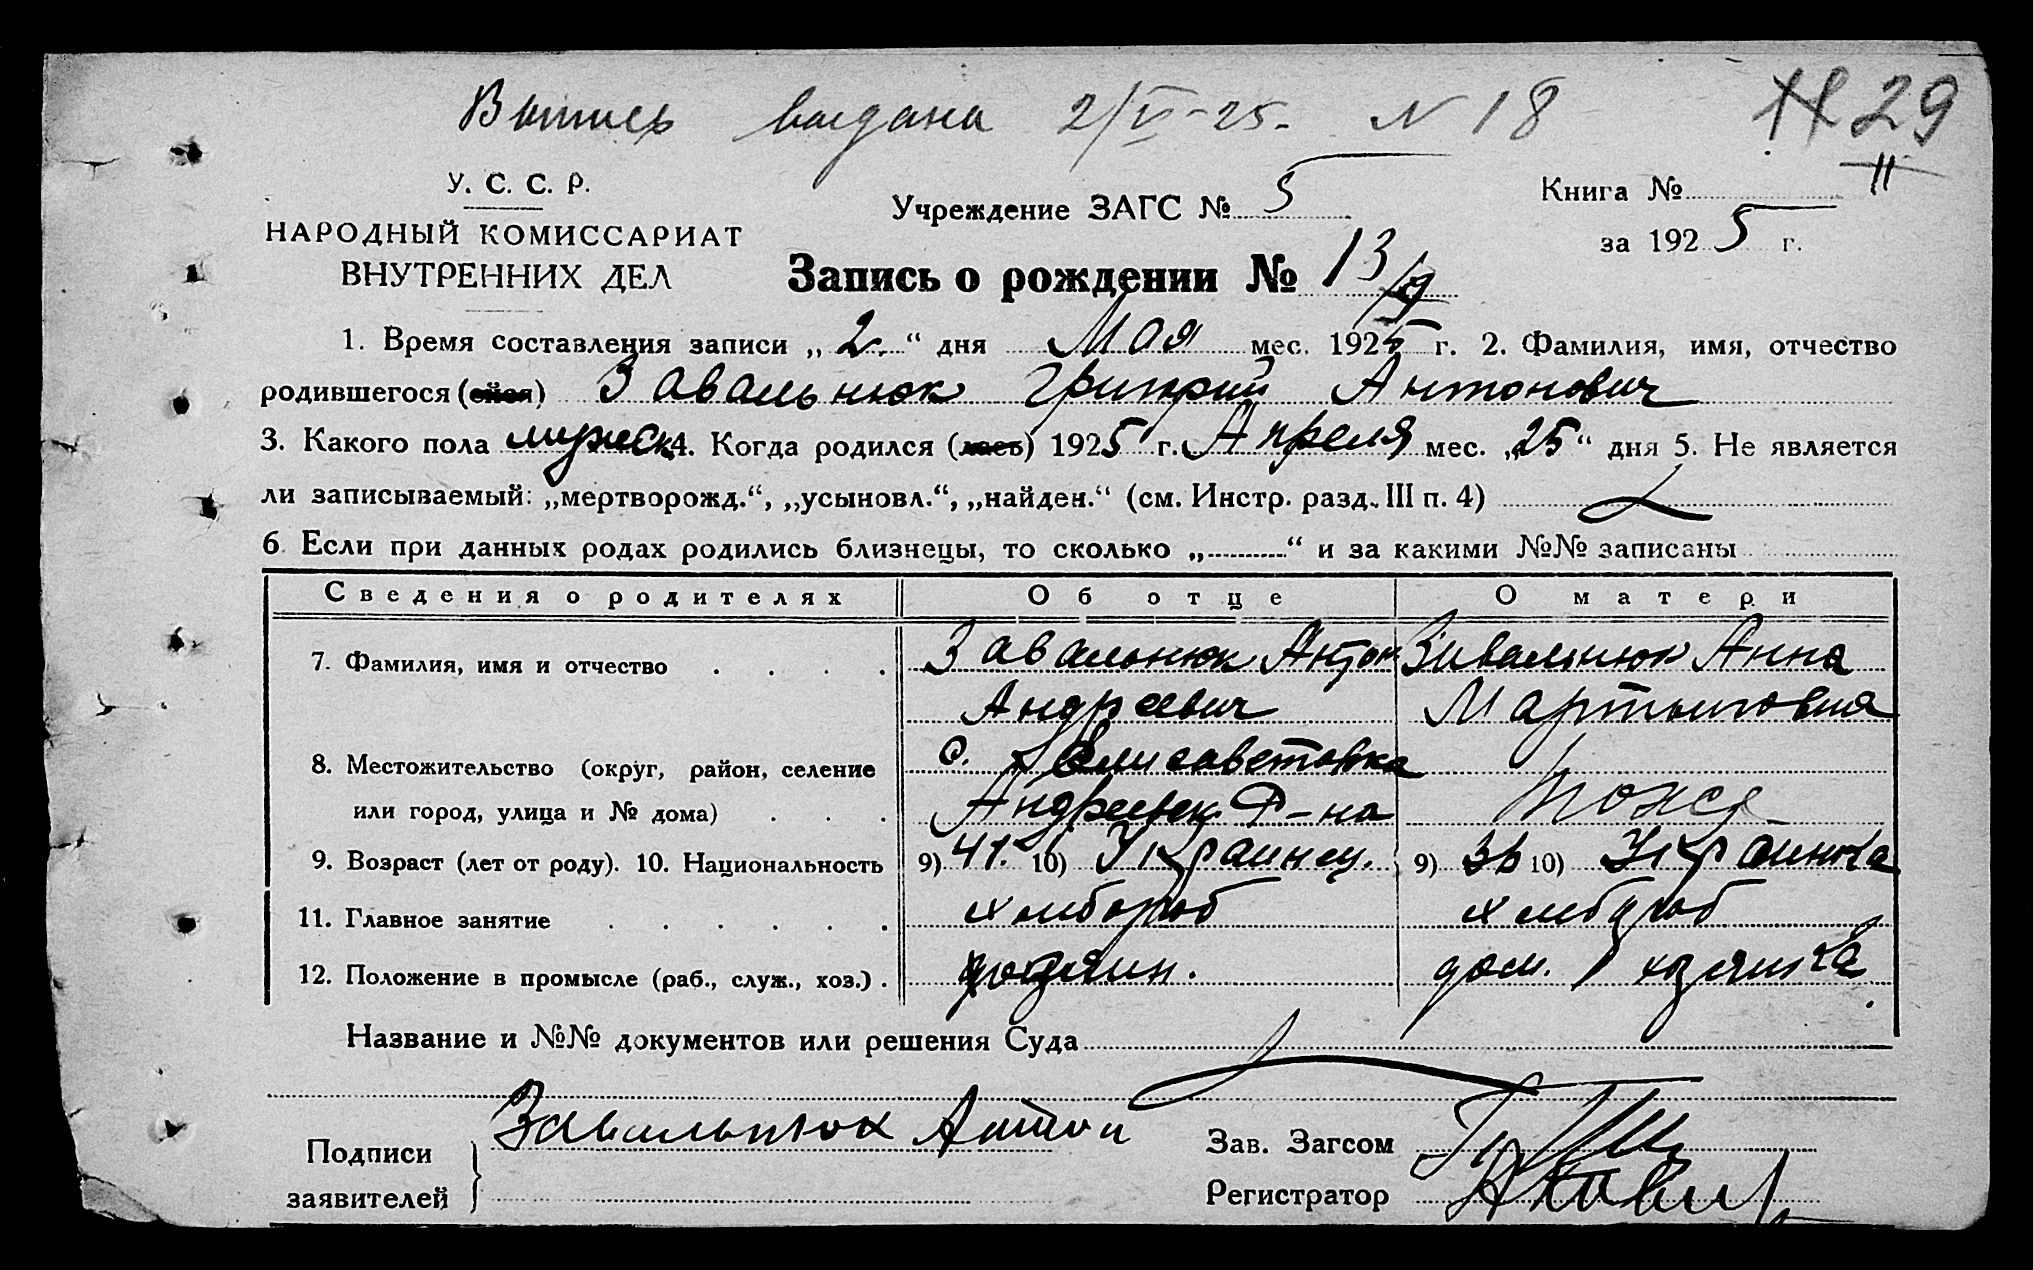 Выпись выдана 2/V-25. N 18 29
У. С. С. Р.
НАРОДНЫЙ КОМИССАРИАТ
ВНУТРЕННИХ ДЕЛ
Учреждение ЗАГС № 5
Книга № II
за 1925 г.
Запись о рождении № 13/9
1. Время составления записи „2.“ дня Мая мес. 1925 г. 2. Фамилия, имя, отчество
родившегося (ейся) Завальнюк Григорий Антонович
3. Какого пола мужск 4. Когда родился (лась) 1925 г. Апреля мес. „25“ дня 5. Не является
ли записываемый: „мертворожд.“, „усыновл.“, „найден.“ (см. Инстр. разд. III п. 4)
6 Если при данных родах родились близнецы, то сколько „.........“ и за какими №№ записаны
Сведения о родителях Об отце О матери
7. Фамилия, имя и отчество . . . . Завальнюк Антон Завальнюк Анна
Андреевич Мартыновна
8. Местожительство (округ, район, селение с. Елисаветовка
или город, улица и № дома) . . . Андреевск. Р-на тоже
9. Возраст (лет от роду). 10. Национальность 9) 41. 10) Украинец. 9) 36 10) Украинка
11. Главное занятие . . . . . . хлебороб хлебороб
12. Положение в промысле (раб., служ., хоз.) . дом. хозяйка
Название и №№ документов или решения Суда
Подписи
заявителей
Завальнюк Антон
Зав. Загсом
Регистратор